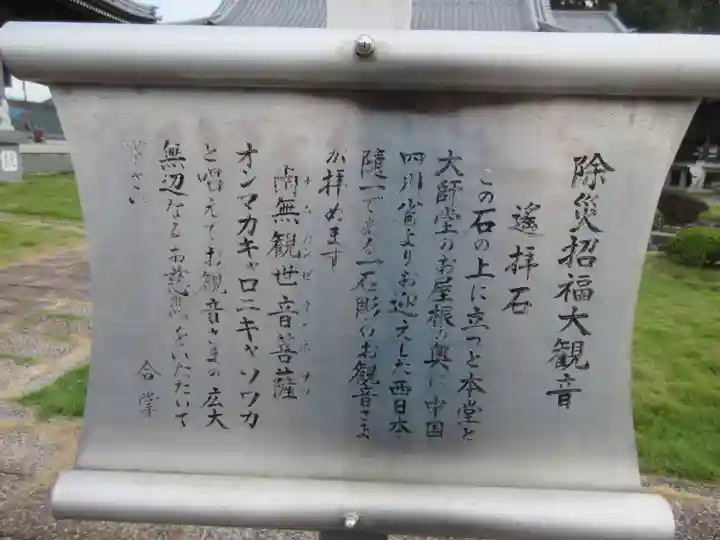 除災招福大観音
遙拝石
この石の上に立つと本堂と
大師堂のお屋根の奥に中国
四川省よりお迎えした西日本
随一である一石彫のお観音さま
が拝めます
南無観世音菩薩
オンマカキャロニキャソワカ
と唱えてお観音さまの広大
無辺なるお慈悲をいただいて
下さい
合掌